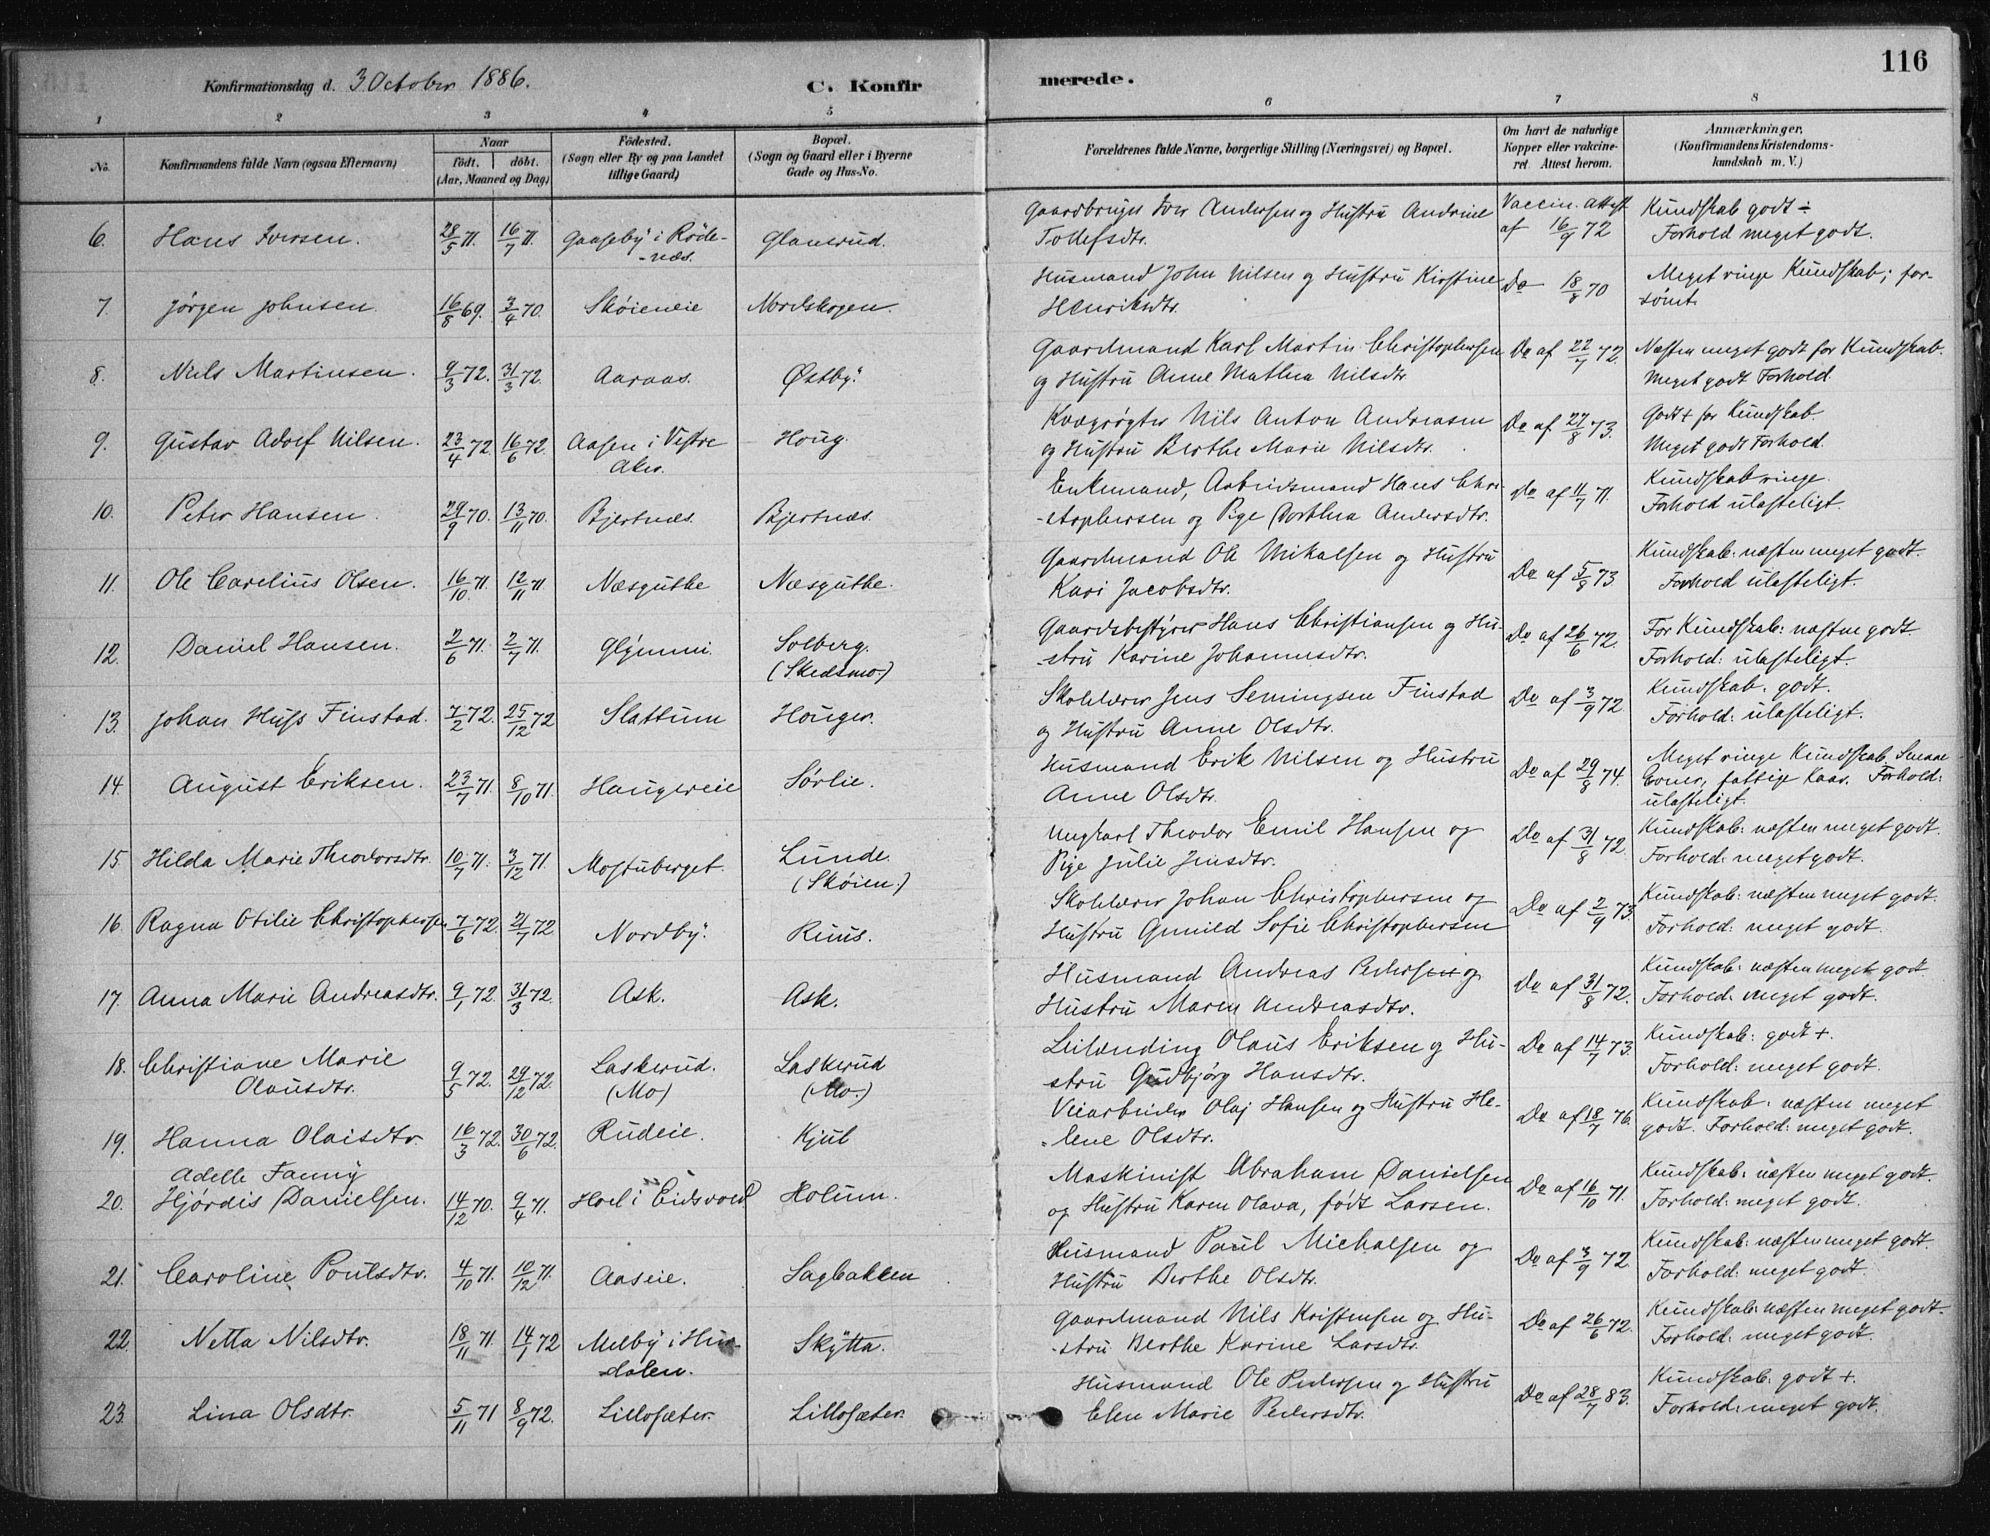 116
Konfirmationsdag d. 3 October 1886. C. Konfirmerede.
1 2 3 4 5 6 7 8
No. Konfirmandens fulde Navn (ogsaa Efternavn) Naar födt. döbt. (Aar, Maaned og Dag) Födested. (Sogn eller By og paa Landet tillige Gaard) Bopæl. (Sogn og Gaard eller i Byerne Gade og Hus-No. Forældrenes fulde Navne, borgerlige Stilling (Næringsvei) og Bopæl. Om havt de naturlige Kopper eller vakcineret. Attest herom. Anmærkninger, (Konfirmandens Kristendomskundskab m. V.)
6. Hans Iversen. 28/5 71. 16/7 71. Gaaseby i Röde- Glanerud. Gaardbruger Iver Andersen og Hustru Andrine Vaccin. attest Kundskab godt ÷
-næs. Tollefsdtr. af 16/9 72 Forhold meget godt.
7. Jørgen Johnsen 16/8 69. 3/4 70. Skøieneie Nordskogen. Husmand John Nilsen og Hustru Kirstine Do 18/8 70 Meget ringe Kundskab; for-
Henriksdtr. sömt.
8. Niels Martinsen. 9/3 72. 31/3 72. Aaraas. Østby. Gaardmand Karl Martin Christophersen Do af 22/7 72. Næsten meget godt for Kundskab.
og Hustru Anne Mathea Nilsdtr. Meget godt Forhold.
9. Gustav Adolf Nilsen. 23/4 72. 16/6 72. Aasen i Vestre Houg. Kvægrøgter Nils Anton Andreasen Do af 27/8 73. Godt + for Kundskab.
Aker. og Hustru Berthe Marie Nilsdtr. Meget godt Forhold.
10. Peter Hansen. 29/9 70. 13/11 70. Bjertnæs. Bjertnæs. Enkemand, Arbeidsmand Hans Chri- Do af 11/7 71. Kundskab ringe.
-stophersen og Pige Dorthea Andersdtr. Forhold ulasteligt.
11. Ole Carelius Olsen. 16/10 71. 12/11 71. Næsguthe Næsguthe. Gaardmand Ole Mikalsen og Hustru Do af 5/8 73. Kundskab: næsten meget godt.
Kari Jacobsdtr. Forhold ulasteligt.
12. Daniel Hansen. 2/6 71. 2/7 71. Glymmi. Solberg. Gaardsbestyrer Hans Christiansen og Hu- Do af 26/6 72. For Kundskab: næsten godt.
(Skedsmo.) -stru Karine Johannesdtr. Forhold: ulasteligt.
13. Johan Huss Finstad. 7/2 72. 25/12 72 Slattum Houger. Skolelærer Jens Semingsen Finstad Do af 3/9 72. Kundskab: godt.
og Hustru Anne Olsdtr. Forhold: ulasteligt.
14. August Eriksen. 23/7 71. 8/10 71. Haugereie Sørlie. Husmand Erik Nilsen og Hustru Do af 29/8 74. Meget ringe Kundskab. Smaae
Anne Olsdtr. Evner, fattige Kaar. Forhold:
ulasteligt.
15. Hilda Marie Theodorsdtr. 10/7 71. 3/12 71 Mostuberget. Lunde. Ungkarl Theodor Emil Hansen og Do af 31/8 72. Kundskab: næsten meget godt.
(Skøien.) Pige Julie Jensdtr. Forhold: meget godt.
16. Ragna Otilie Christophersen 7/6 72. 21/7 72. Nordby. Ruus. Skolelærer Johan Christophersen og Do af 2/9 73. Kundskab: næsten meget godt.
Hustru Gunild Sofie Christophersen Forhold: meget godt.
17. Anna Marie Andreasdtr. 9/1 72. 31/3 72. Ask. Ask. Husmand Andreas Pedersen og Do af 31/8 72. Kundskab: næsten meget godt.
Hustru Maren Andreasdtr. Forhold: meget godt.
18. Christiane Marie 9/5 72. 29/12 72. Laskerud. Laskerud Leilænding Olaus Eriksen og Hu- Do af 14/7 73. Kundskab: godt +.
Olausdtr. (Mo) (Mo.) stru Gudbjørg Hansdtr. Forhold: meget godt.
19. Hanna Olaisdtr. 16/3 72. 30/6 72. Rudeie. Kjul Veiarbeider Olaj Hansen og Hustru He- Do af 18/7 76. Kundskab: næsten meget
-lene Olsdtr. godt. Forhold: meget godt.
Adelle Fanny
20. Hjørdis Danielsen. 14/12 70. 9/4 71. Hoel i Eidsvold Holum. Maskinist Abraham Danielsen Do af 16/10 71. Kundskab: næsten meget godt.
og Hustru Karen Olava, født Larsen. Forhold: meget godt.
21. Caroline Poulsdtr. 4/10 71. 10/12 71. Aaseie. Sagbakken Husmand Paul Michalsen og Do af 3/9 72. Kundskab: næsten meget godt.
Hustru Berthe Olsdtr. Forhold: meget godt.
22. Netta Nilsdtr. 18/11 71. 14/1 72 Melby i Hur- Skytta. Gaardmand Nils Kristensen og Hu- Do af 26/6 72. Kundskab: næsten meget godt.
dalen. -stru Berthe Karine Larsdtr. Forhold: meget godt.
23. Lina Olsdtr. 5/11 71 8/9 72. Lillosæter. Lillosæter. Husmand Ole Pedersen og Hustru Do af 28/7 83. Kundskab: godt +.
Elen Marie Pedersdtr. Forhold: meget godt.